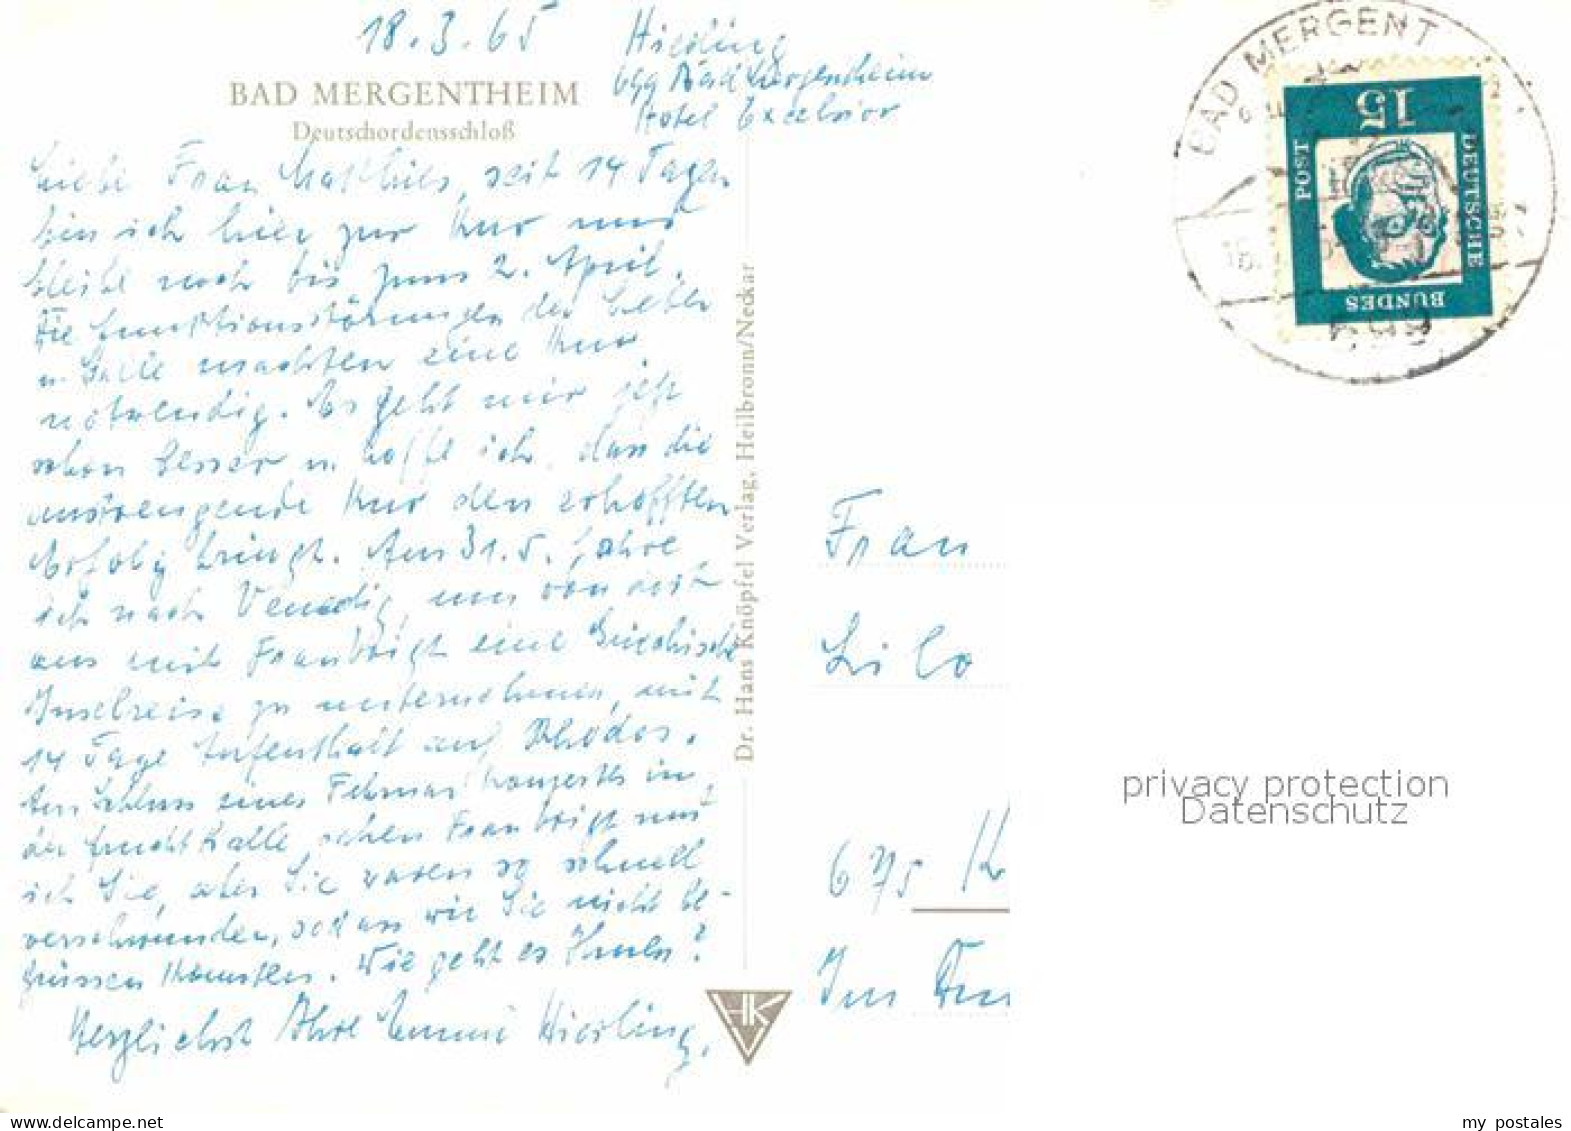 18.3.65
Hiesling
699 Bad Mergentheim
Hotel Excelsior
BAD MERGENTHEIM
Deutschordensschloß
Liebe Frau Matthies, seit 14 Tagen
bin ich hier zur Kur und
bleibe noch bis zum 2. April.
Die Funktionsstörungen der Leber
u. Galle machten eine Kur
notwendig. Es geht mir jetzt
schon besser u. hoffe ich, dass die
anstrengende Kur den erhofften
Erfolg bringt. Am 31.5. fahre
ich nach Venedig, um von dort
aus mit Frau Voigt eine Griechische
Inselreise zu unternehmen, mit
14 Tage Aufenthalt auf Rhodos.
Am Schluss eines Februar Konzertes in
der Fruchthalle, sahen Frau Voigt und
ich Sie, aber Sie waren so schnell
verschwunden, sodass wir Sie nicht be-
grüssen konnten. Wie geht es Ihnen?
Herzlichst Ihre Emmi Hiesling.
Dr. Hans Knöpfel Verlag, Heilbronn/Neckar
HKV
BAD MERGENT
699
15
DEUTSCHE
BUNDES
POST
Frau
Lilo
675 K
Im
privacy protection
Datenschutz
my postales